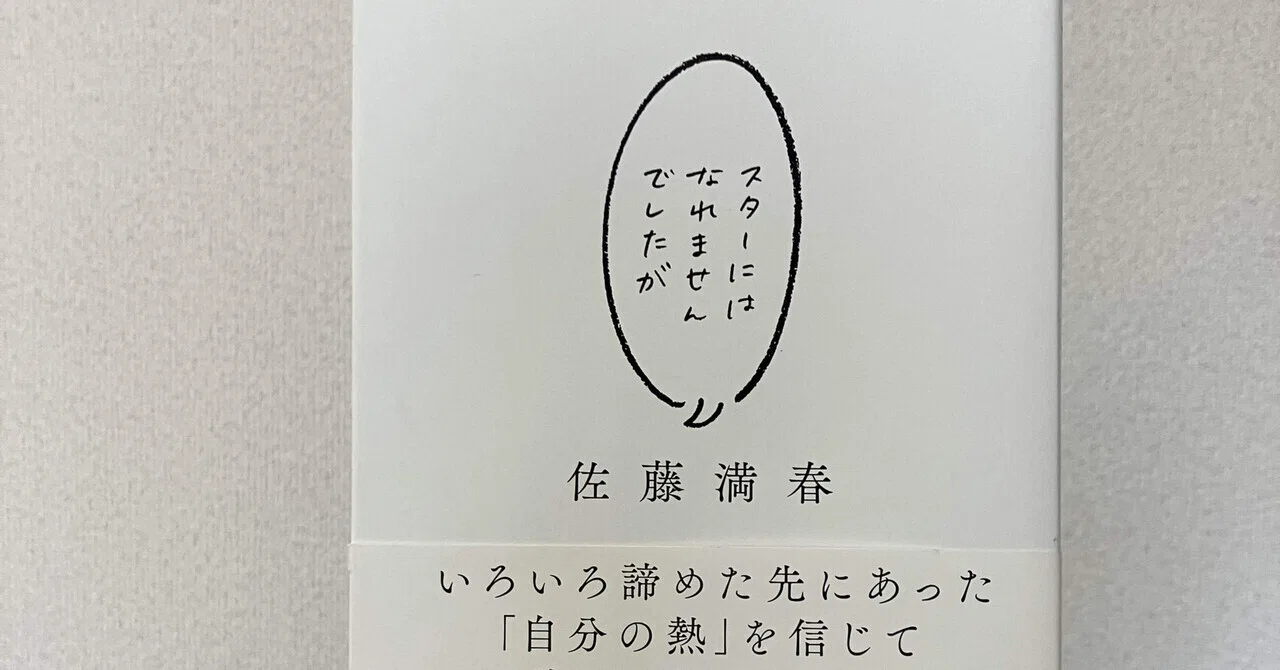 スターには
なれません
でしたが
佐藤満春
いろいろ諦めた先にあった
「自分の熱」を信じて